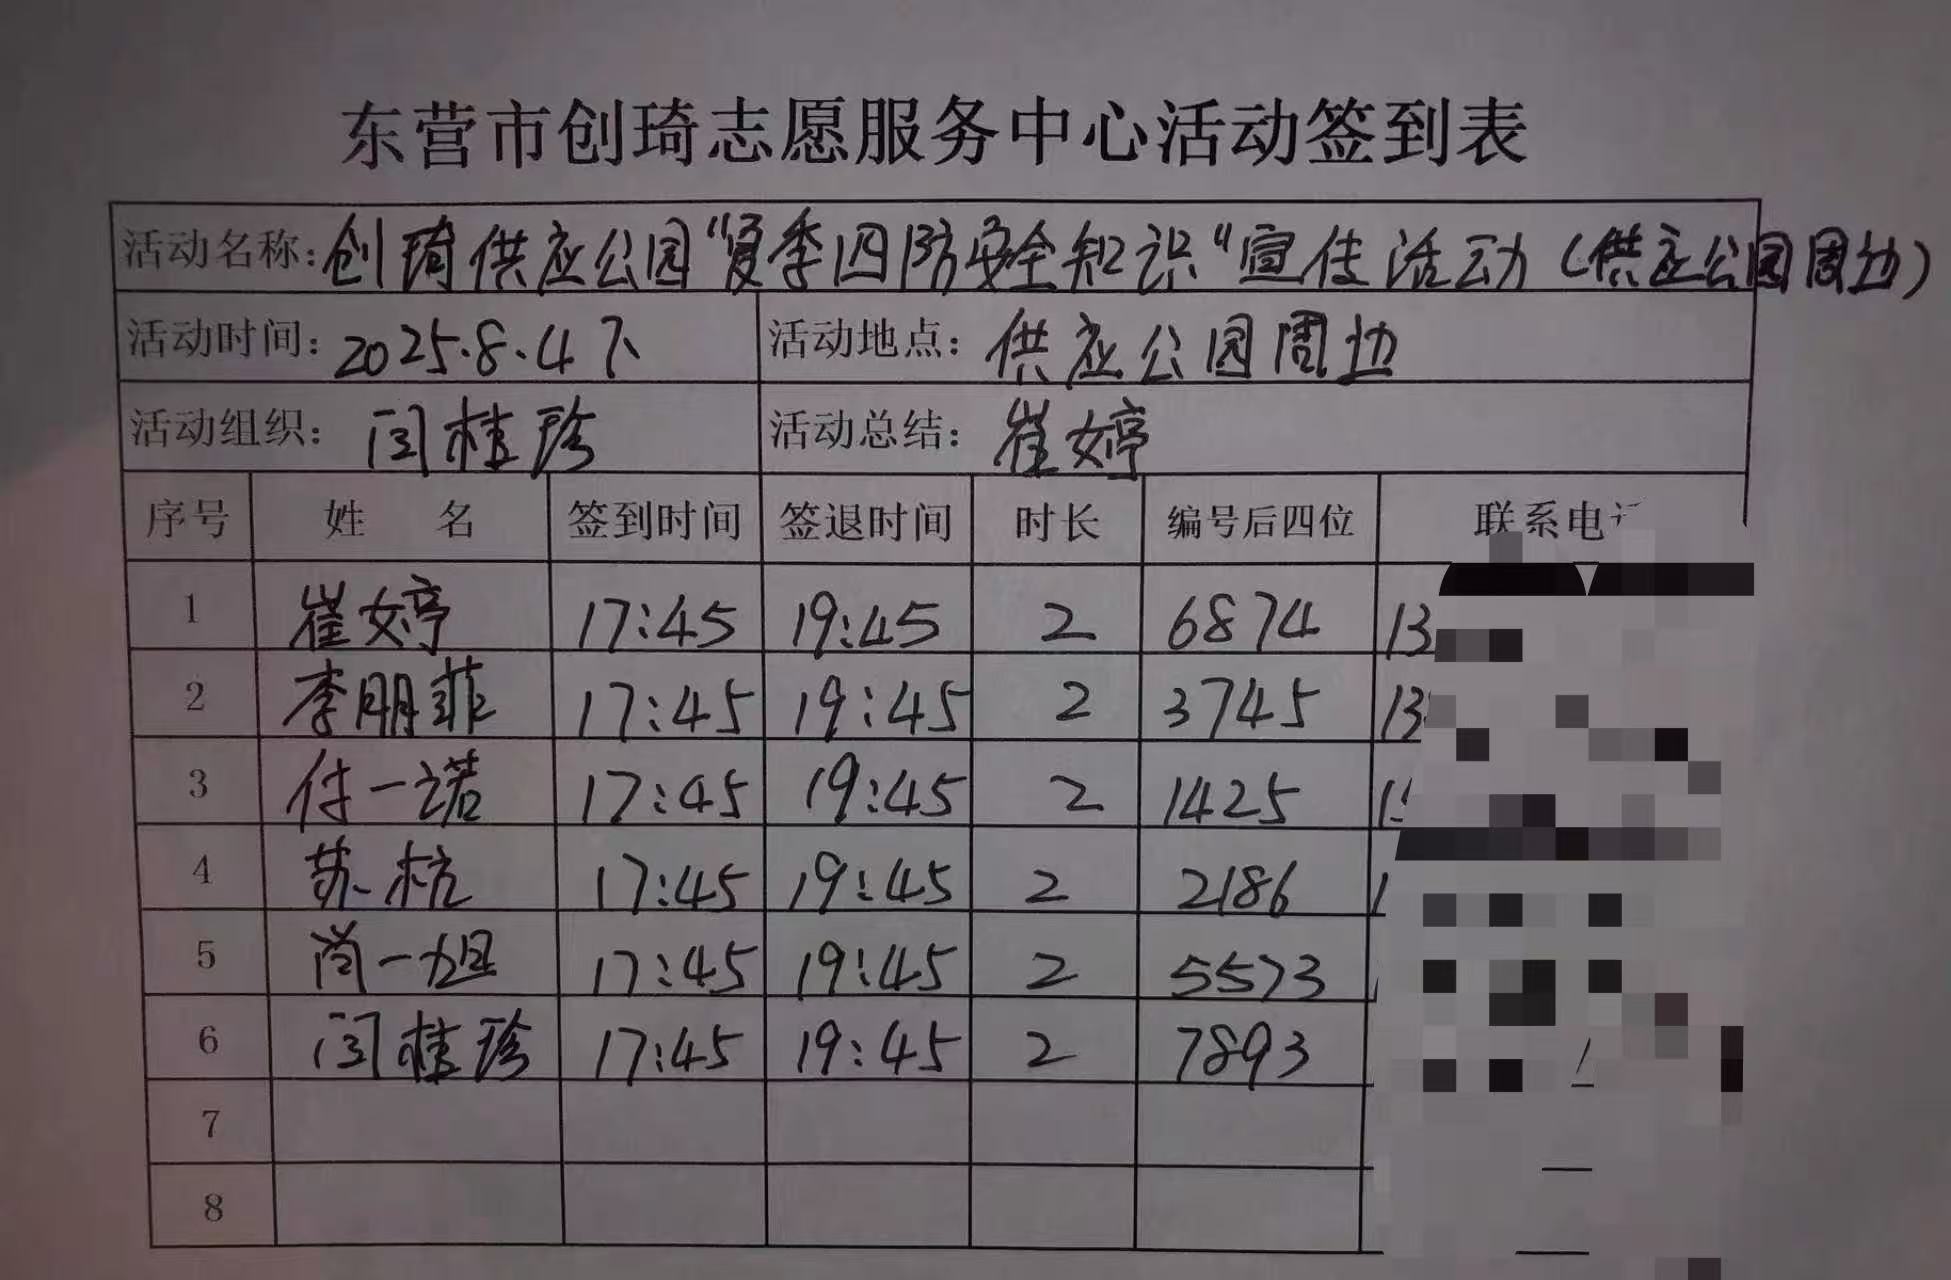 东营市创琦志愿服务中心活动签到表
活动名称：创琦供应公园“夏季四防安全知识“宣传活动（供应公园周边）
活动时间：2025.8.4下 活动地点：供应公园周边
活动组织：闫桂珍 活动总结：崔婷
序号 姓名 签到时间 签退时间 时长 编号后四位 联系电
1 崔婷 17:45 19:45 2 6874 13
2 李朋菲 17:45 19:45 2 3745 13
3 付一诺 17:45 19:45 2 1425 1
4 苏杭 17:45 19:45 2 2186 1
5 尚一妲 17:45 19:45 2 5573
6 闫桂珍 17:45 19:45 2 7893
7
8